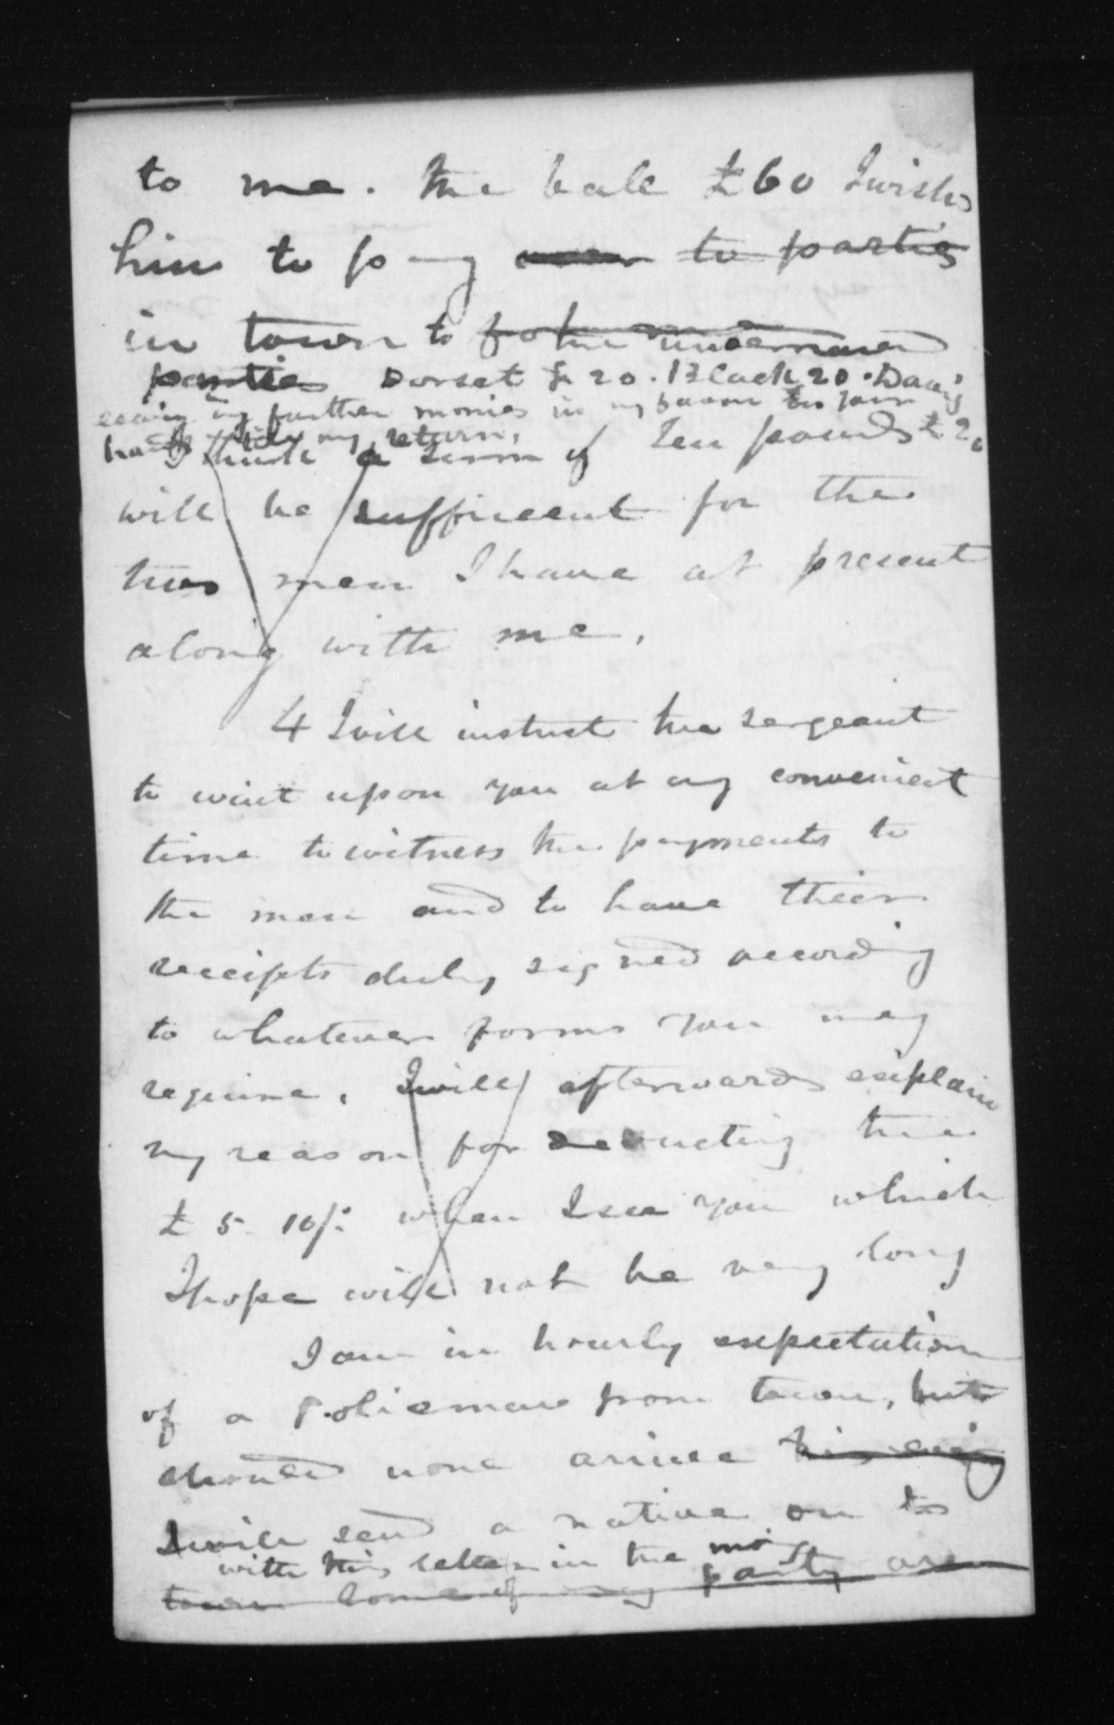 to me. the bale £60 I wish
him to pay over to parties
in town to
parties Dorset £20. Black 20. Davis
any further monies in my favour
my return. £20
I think a sum of Ten pounds
will be sufficeent for the
two men I have at present
along with me.
4 I will instuct the sergeant
to wait upon you at any convenient
time to witness the payments to
the men and to have their
receipts duly signed according
to whatever forms you may
require. I will afterwards explain
my reason for deducting the
£ 5. 10/: when I see you which
I hope will not be very long
I am in hourly expectation
of a Policeman from town, but
should none arrive
I will send a native on to
with this letter in the
town Some of my party are